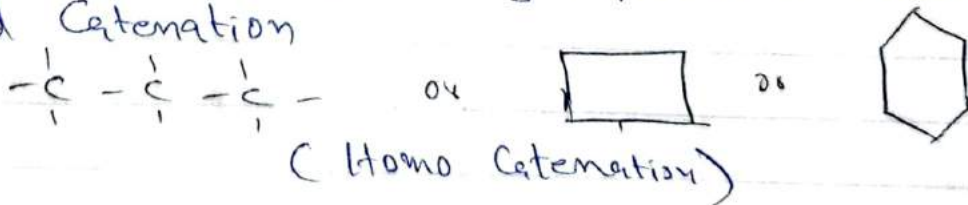 Catenation
- C - C - C - or or
(Homo Catenation)